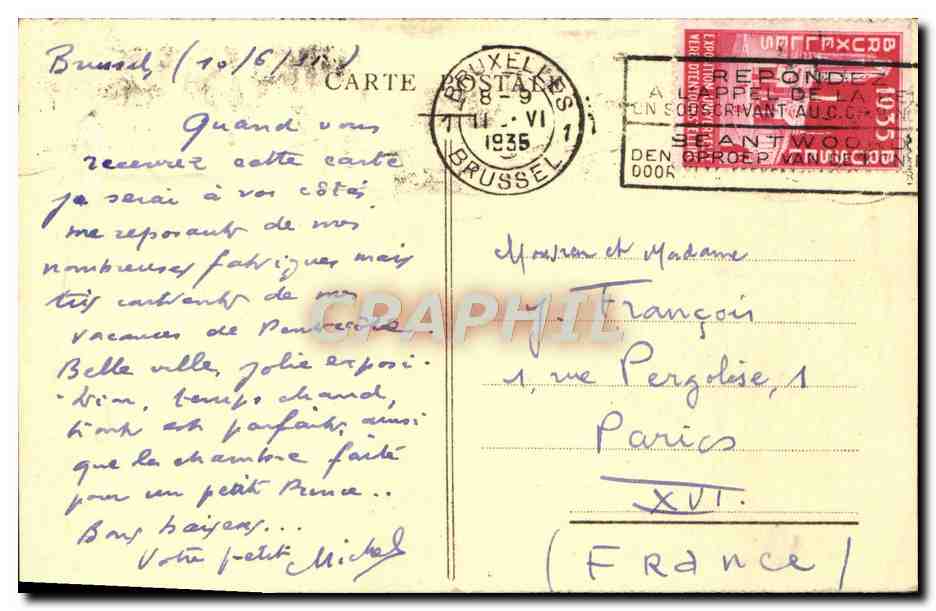 Brussels (10/6/35)
CARTE POSTALE
Quand vous
recevrez cette carte
je serai à vos côtés
me reposant de nos
nombreuses fatigues mais
très contents de nos
vacances de Pentecôte
Belle ville, jolie exposi-
-tion, temps chaud,
tout est parfait, ainsi
que la chambre faite
pour un petit Prince..
Bons baisers...
Votre petit Michel
BRUXELLES
8-9
11-VI
1935
1 1
BRUSSEL
REPONDEZ
A L'APPEL DE LA
EN SOUSCRIVANT AU C.C.
SEANTWOOR
DEN OPROEP VAN
DOOR
BRUXELLES
1935
BRUSSEL
EXPOSITION UNIVERSELLE
WERELDTENTOONSTELLING
Monsieur et Madame
J. François
1, rue Pergolèse, 1
Paris
XVI.
(France)
CPAPHIL